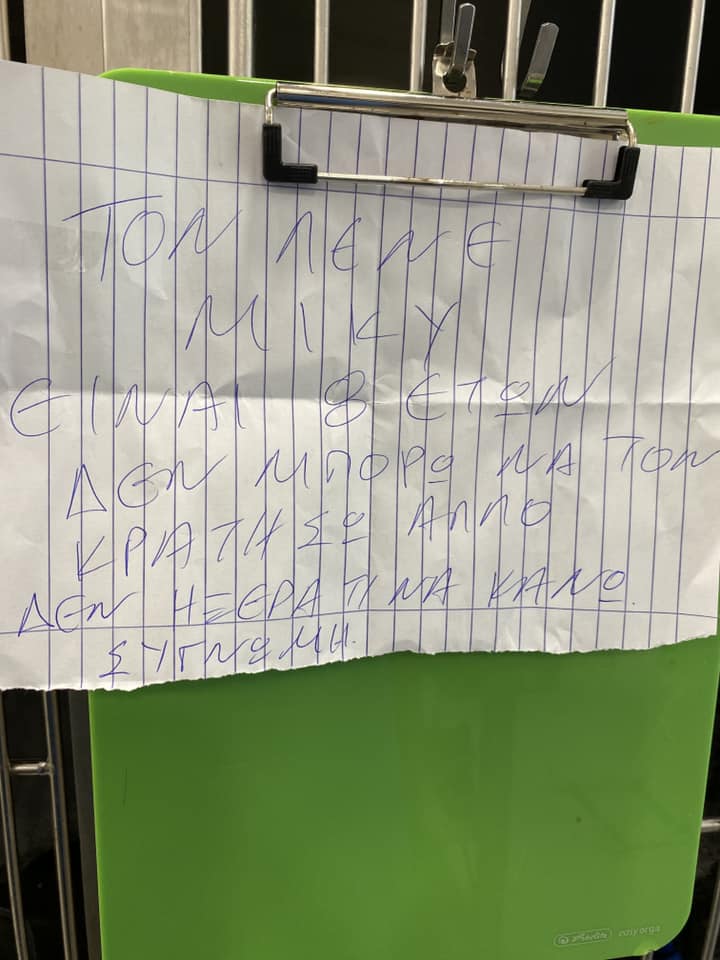 ΤΟΝ ΛΕΝΕ
ΜΙΚΥ
ΕΙΝΑΙ 8 ΕΤΩΝ
ΔΕΝ ΜΠΟΡΩ ΝΑ ΤΟΝ
ΚΡΑΤΗΣΩ ΑΛΛΟ
ΔΕΝ ΗΞΕΡΑ ΤΙ ΝΑ ΚΑΝΩ.
ΣΥΓΝΩΜΗ.
herlitz easyorga